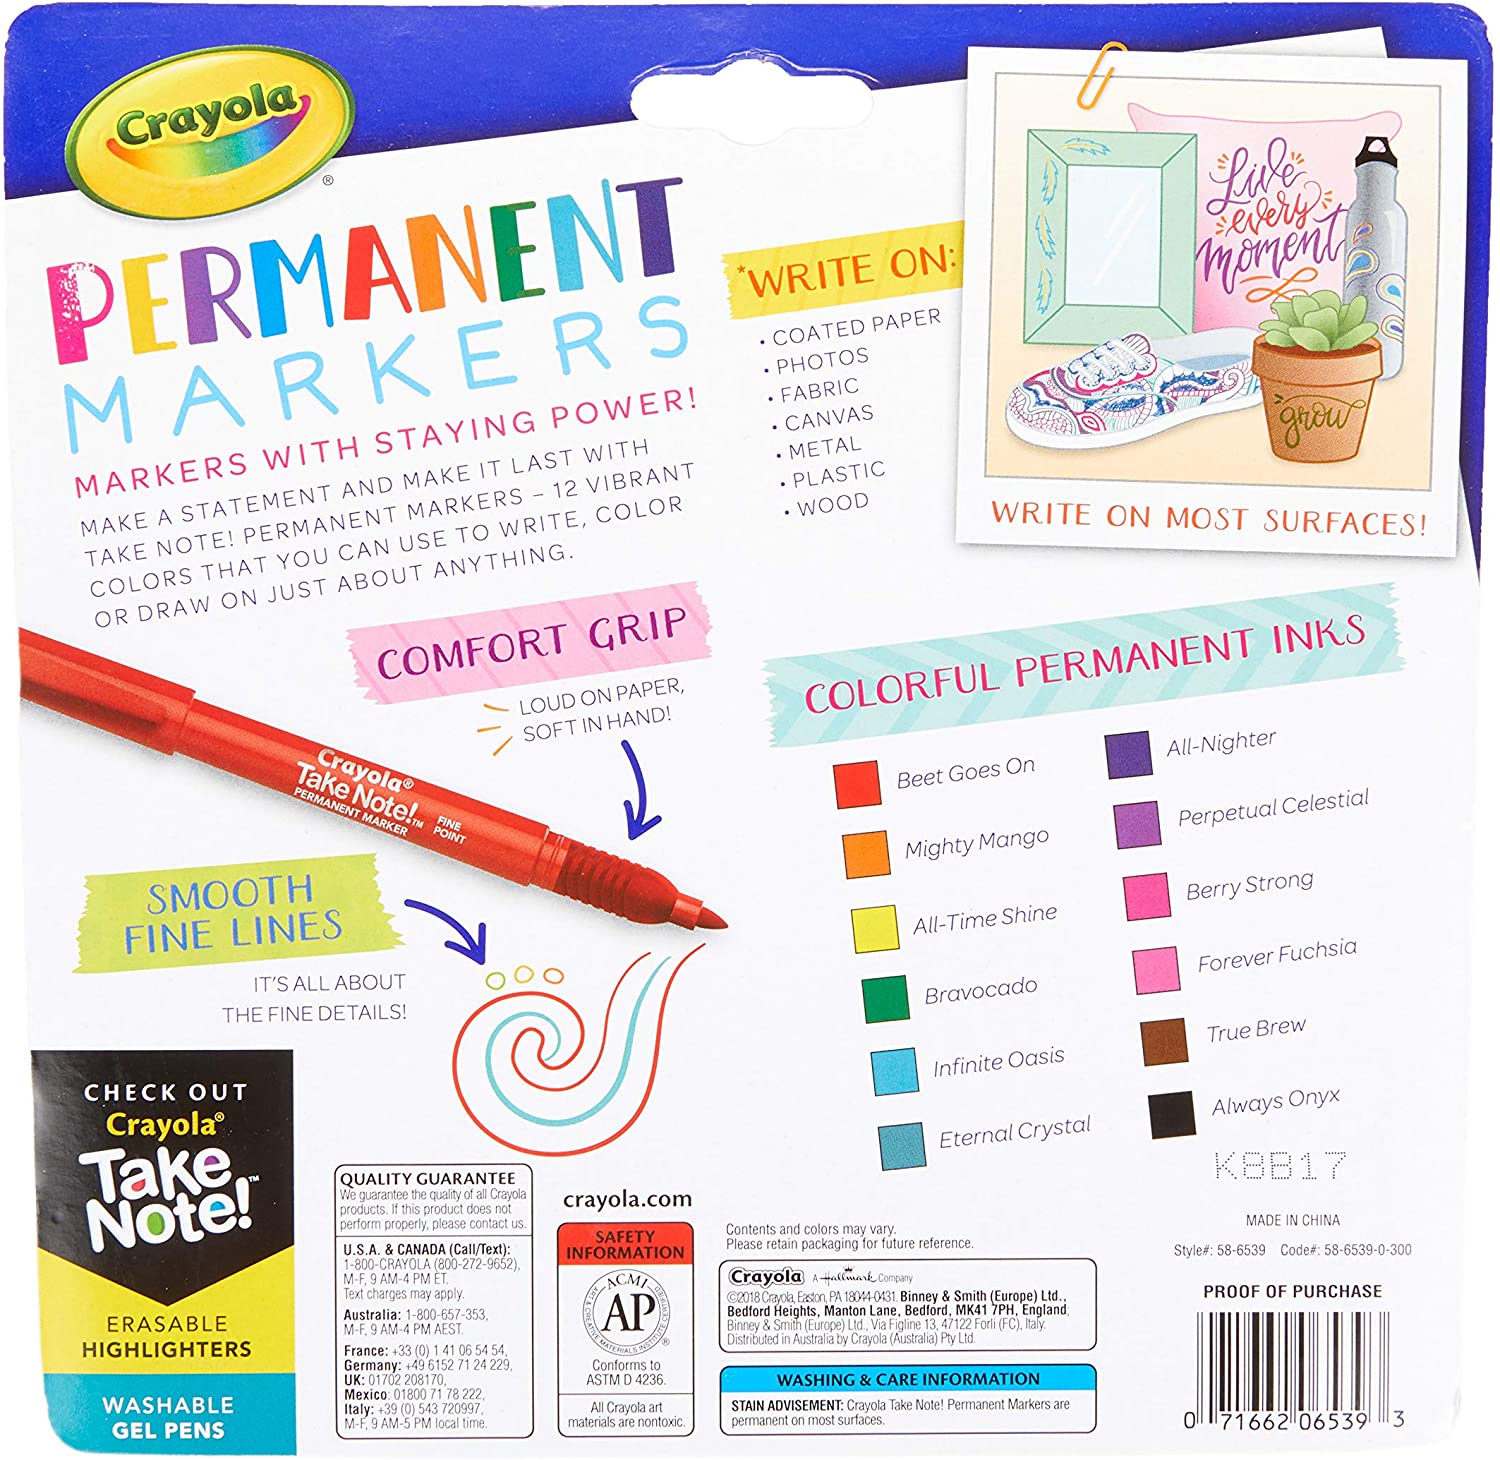 Crayola
®
PERMANENT
MARKERS
MARKERS WITH STAYING POWER!
MAKE A STATEMENT AND MAKE IT LAST WITH
TAKE NOTE! PERMANENT MARKERS – 12 VIBRANT
COLORS THAT YOU CAN USE TO WRITE, COLOR
OR DRAW ON JUST ABOUT ANYTHING.
*WRITE ON:
• COATED PAPER
• PHOTOS
• FABRIC
• CANVAS
• METAL
• PLASTIC
• WOOD
Live
every
moment
grow
WRITE ON MOST SURFACES!
COMFORT GRIP
LOUD ON PAPER,
SOFT IN HAND!
Crayola®
Take Note!™
PERMANENT MARKER
FINE
POINT
SMOOTH
FINE LINES
IT'S ALL ABOUT
THE FINE DETAILS!
COLORFUL PERMANENT INKS
Beet Goes On
Mighty Mango
All-Time Shine
Bravocado
Infinite Oasis
Eternal Crystal
All-Nighter
Perpetual Celestial
Berry Strong
Forever Fuchsia
True Brew
Always Onyx
K8B17
MADE IN CHINA
Style#: 58-6539 Code#: 58-6539-0-300
PROOF OF PURCHASE
0 71662 06539 3
CHECK OUT
Crayola®
Take
Note!™
ERASABLE
HIGHLIGHTERS
WASHABLE
GEL PENS
QUALITY GUARANTEE
We guarantee the quality of all Crayola
products. If this product does not
perform properly, please contact us.
U.S.A. & CANADA (Call/Text):
1-800-CRAYOLA (800-272-9652),
M-F, 9 AM-4 PM ET.
Text charges may apply.
Australia: 1-800-657-353,
M-F, 9 AM-4 PM AEST.
France: +33 (0) 1 41 06 54 54,
Germany: +49 6152 71 24 229,
UK: 01702 208170,
Mexico: 01800 71 78 222,
Italy: +39 (0) 543 720997,
M-F, 9 AM-5 PM local time.
crayola.com
SAFETY
INFORMATION
ACMI
AP
ART & CREATIVE MATERIALS INSTITUTE CERTIFIED
Conforms to
ASTM D 4236.
All Crayola art
materials are nontoxic.
Contents and colors may vary.
Please retain packaging for future reference.
Crayola A Hallmark Company
©2018 Crayola, Easton, PA 18044-0431. Binney & Smith (Europe) Ltd.,
Bedford Heights, Manton Lane, Bedford, MK41 7PH, England;
Binney & Smith (Europe) Ltd., Via Figline 13, 47122 Forlì (FC), Italy.
Distributed in Australia by Crayola (Australia) Pty Ltd.
WASHING & CARE INFORMATION
STAIN ADVISEMENT: Crayola Take Note! Permanent Markers are
permanent on most surfaces.